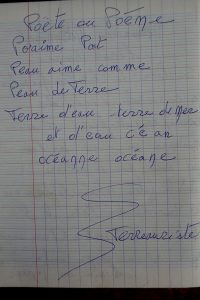 Poète ou Poéme
Poraime Port
Peau aime comme
Peau de Terre
Terre d'eau terre de mer
et d'eau cé an
océanne océane
Terreauriste